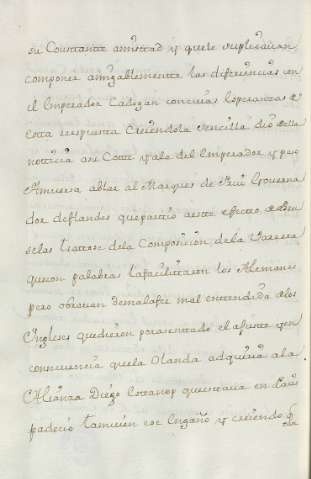 su Constante amistad y que le suplicavan
componer amigablemente las diferencias con
el Emperador Cadogan con essas esperanzas &
esta respuesta Creiendola sencilla dió della
noticia asu Corte y ala del Emperador y paso
Amversa ablar al Marques de Prie Governa
dor deflandes que partió aeste efecto, a Bru
selas tratose dela Composicion dela Varrera
que con palabras lafacilitaron los Alemanes
pero obravan demalafee mal entendida delos
Ingleses que dieron por asentado el ajuste y en
consecuencia que la Olanda adquiria a la
Alianza Diego que estava en Paris
padeció tambien ese Engaño y creiendo q